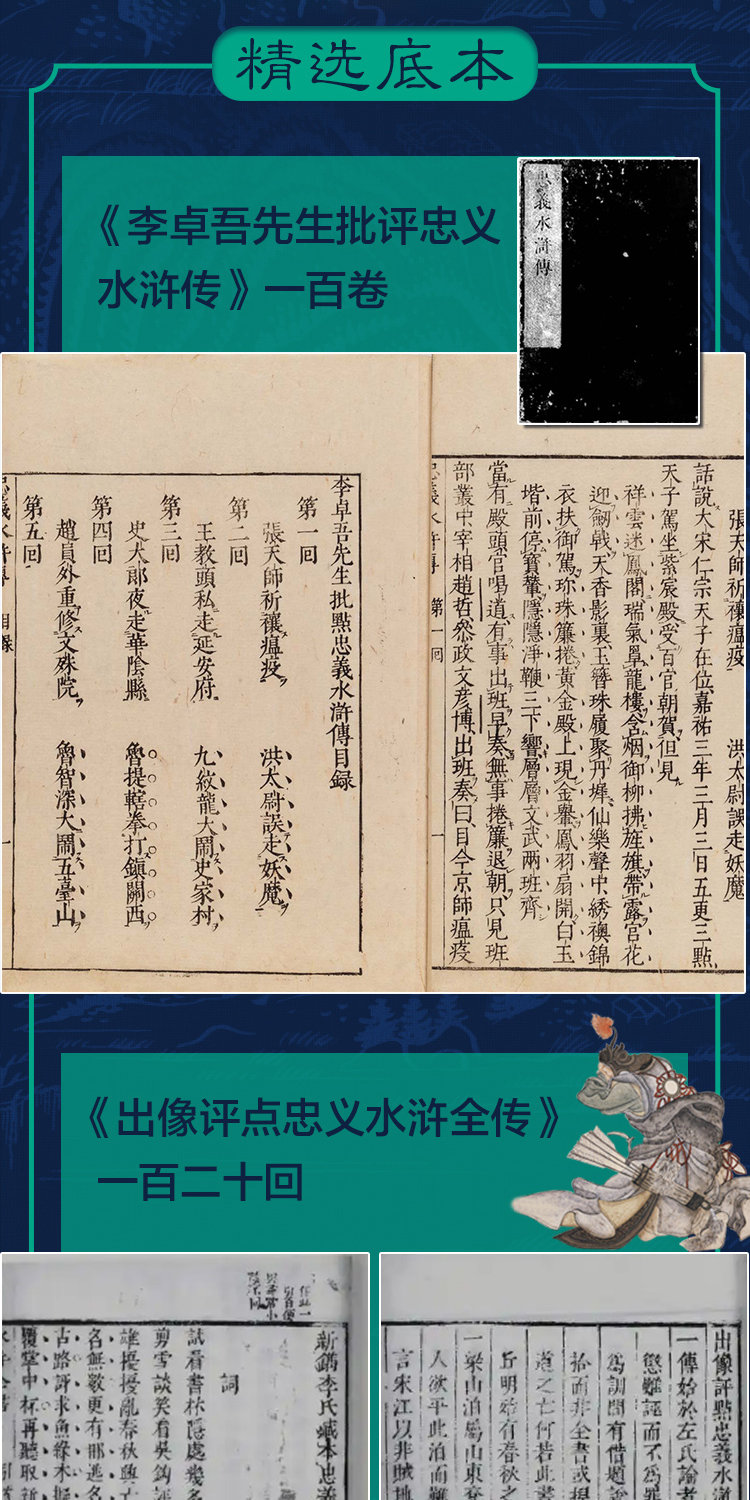 精选底本
《李卓吾先生批评忠义
水浒传》一百卷
忠義水滸傳
張天師祈禳瘟疫 洪太尉誤走妖魔
話說大宋仁宗天子在位嘉祐三年三月三日五更三點
天子駕坐紫宸殿受百官朝賀但見
祥雲迷鳳閣瑞氣罩龍樓含烟御柳拂旌旗帶露宮花
迎劒戟天香影裏玉簪珠履聚丹墀仙樂聲中綉襖錦
衣扶御駕珍珠簾捲黃金殿上現金轝鳳羽扇開白玉
堦前停寶輦隱隱淨鞭三下響層層文武兩班齊
當有殿頭官喝道有事出班早奏無事捲簾退朝只見班
部叢中宰相趙哲叅政文彥博出班奏曰目今京師瘟疫
第一回
李卓吾先生批點忠義水滸傳目録
第一回
張天師祈禳瘟疫 洪太尉誤走妖魔
第二回
王教頭私走延安府 九紋龍大鬧史家村
第三回
史大郎夜走華陰縣 魯提轄拳打鎮關西
第四回
趙員外重修文殊院 魯智深大鬧五臺山
第五回
《出像评点忠义水浒全传》
一百二十回
新鐫李氏藏本忠義
詞
試看書林隱處幾
剪雪談笑看吳鈎
雄擾擾亂春秋興亡
名無數更有那逃名
古路訝求魚緣木
覆掌中杯再聽取新
出像評點忠義水滸
一傳始於左氏論者
懲難誣而不爲罪
爲訓間有借題
拾而非全書或
道之亡何若此
丘明始有春秋之
一梁山泊屬山東兗
人欲平此泊而難
言宋江以非賊地